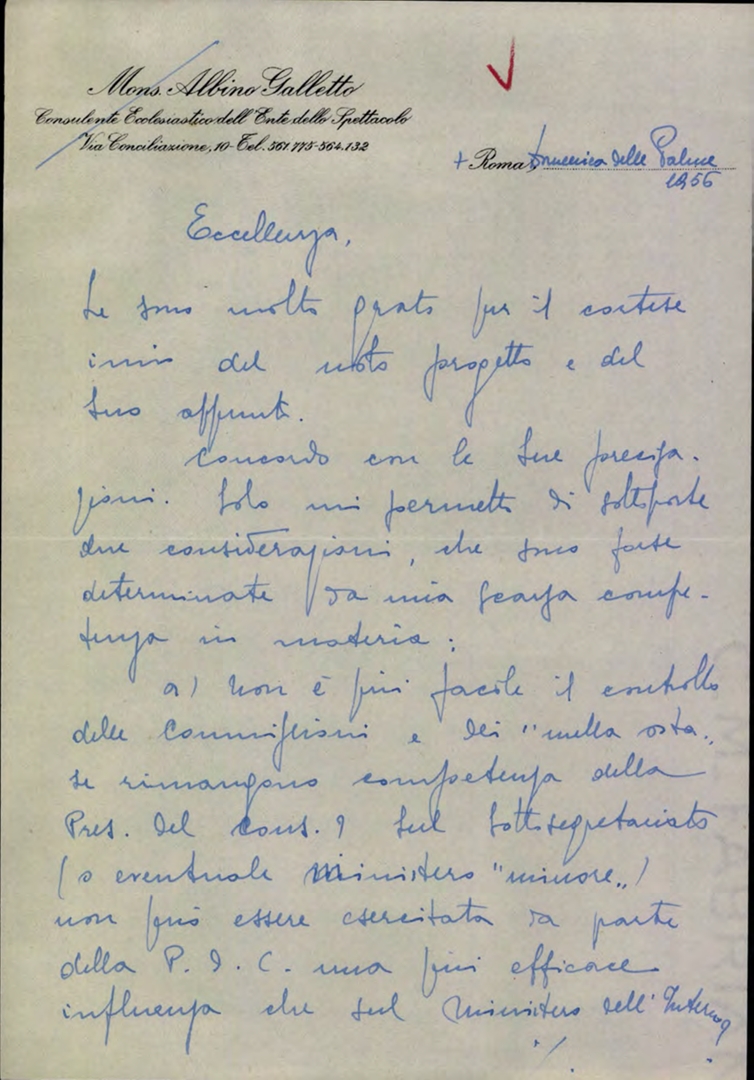 Mons. Albino Galletto
Consulente Ecclesiastico dell'Ente dello Spettacolo
Via Conciliazione, 10 - Tel. 561.775-564.132
+ Roma, Domenica delle Palme
1956
Eccellenza,
Le sono molto grato per il cortese
invio del noto progetto e del
Suo appunto.
Concordo con le Sue precisa-
zioni. Solo mi permetto di sottoporre
due considerazioni, che sono forse
determinate da mia scarsa compe-
tenza in materia:
a) Non è più facile il controllo
delle Commissioni e dei "nulla osta"
se rimangono competenza della
Pres. del Cons.? Sul Sottosegretariato
(o eventuale Ministero "minore")
non può essere esercitata da parte
della P.D.C. una più efficace
influenza che sul Ministero dell'Interno?
./.